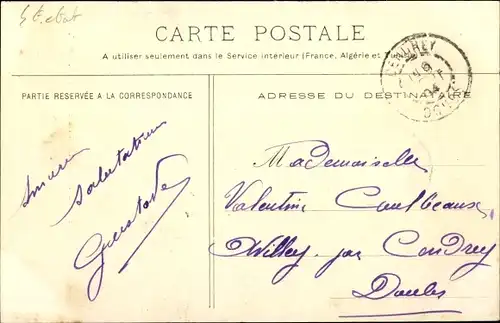 CARTE POSTALE
A utiliser seulement dans le Service intérieur (France, Algérie et
PARTIE RÉSERVÉE A LA CORRESPONDANCE
ADRESSE DU DESTINATAIRE
salutations
Gustave
Mademoiselle
Valentine
Willey par Cendrey
Doubs